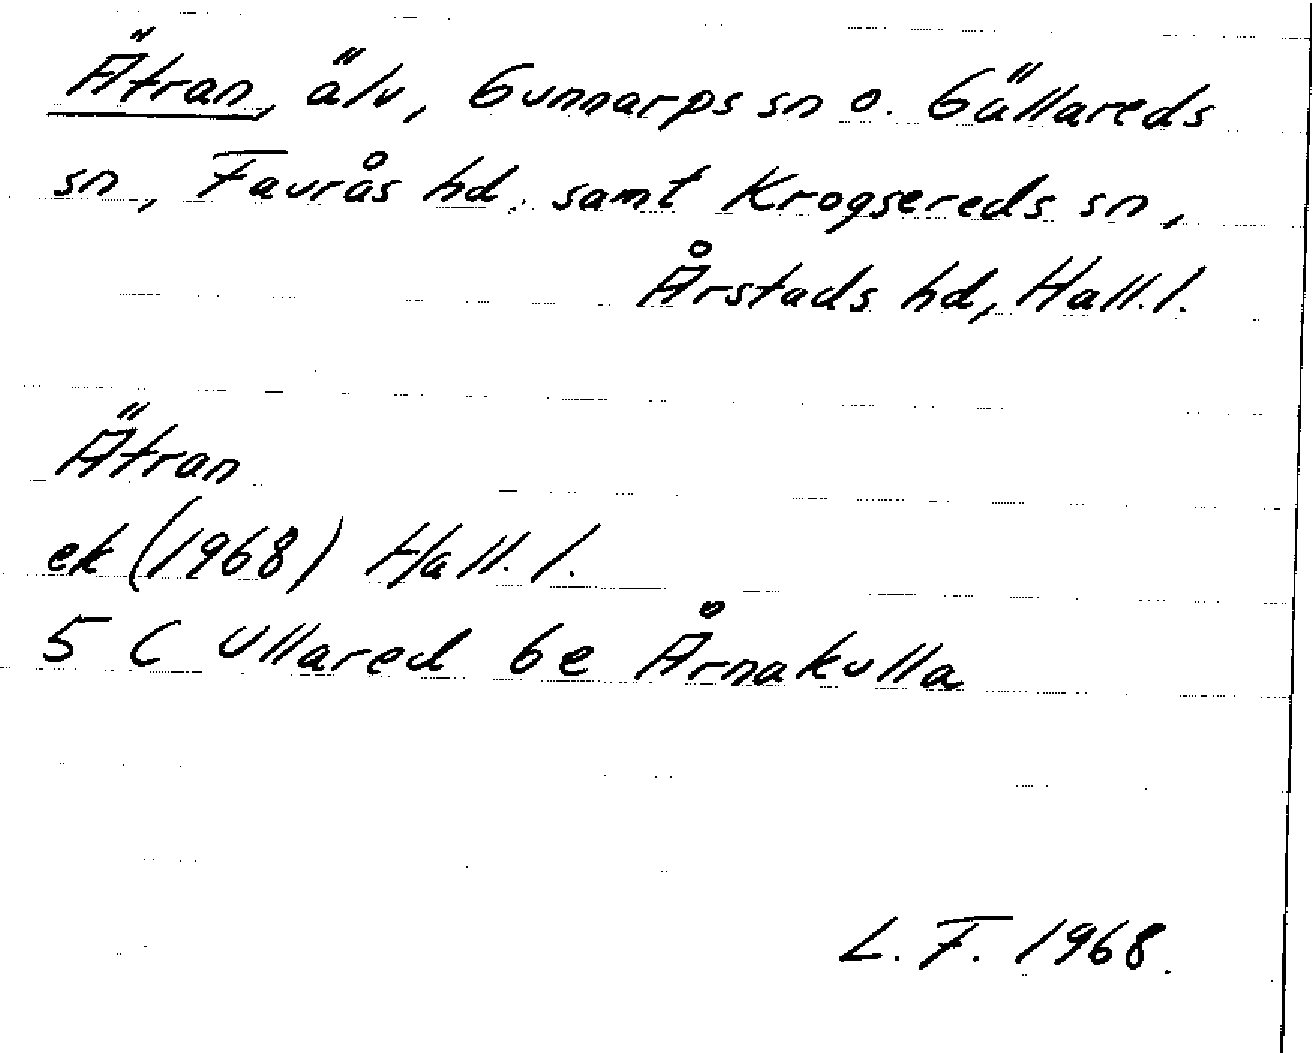 Ätran, älv, Gunnarps sn o. Gällareds
sn, Faurås hd, samt Krogsereds sn,
Årstads hd, Hall.l.
Ätran
ek (1968) Hall. l.
5 C Ullared 6e Årnakulla
L. F. 1968.